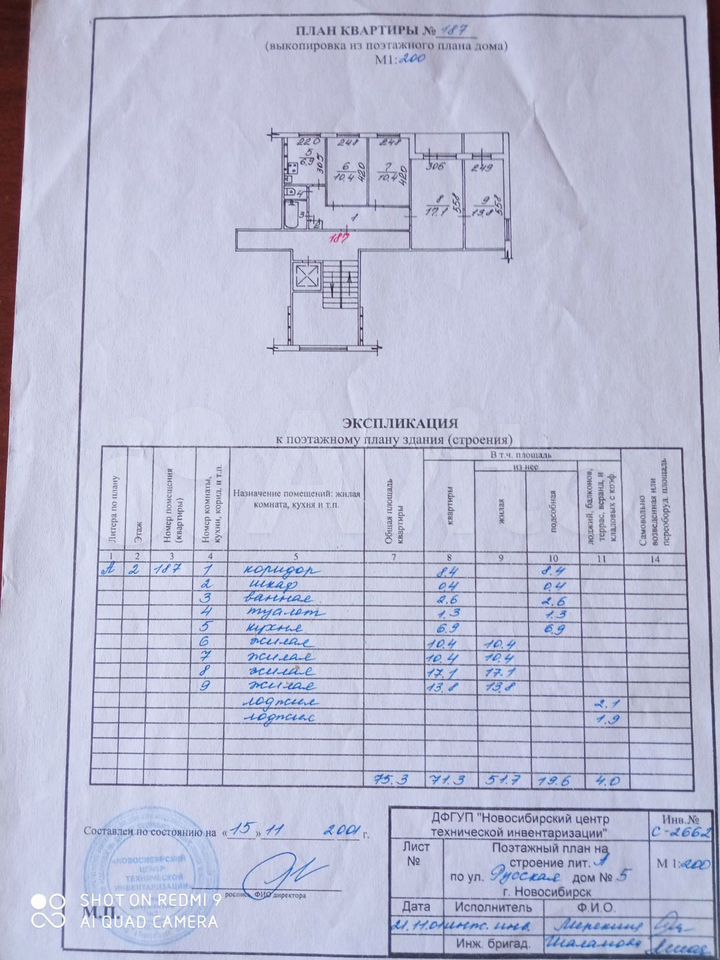 ПЛАН КВАРТИРЫ № 187
(выкопировка из поэтажного плана дома)
М1:200
220 248 248
5 6,9 305
6 10,4 420
7 10,4 420
306 249
8 17,1 558
9 13,8 558
4
3
2
1
187
ЭКСПЛИКАЦИЯ
к поэтажному плану здания (строения)
Литера по плану
Этаж
Номер помещения (квартиры)
Номер комнаты, кухни, корид. и т.п.
Назначение помещений: жилая комната, кухня и т.п.
Общая площадь квартиры
В т.ч. площадь
квартиры
из нее
жилая
подсобная
лоджий, балконов, террас, веранд, и кладовых с коэф.
Самовольно возведенная или переоборуд. площадь
1 2 3 4 5 7 8 9 10 11 14
А 2 187 1 коридор 8.4 8.4
2 шкаф 0,4 0,4
3 ванная 2.6 2.6
4 туалет 1.3 1.3
5 кухня 6,9 6,9
6 жилая 10,4 10,4
7 жилая 10,4 10,4
8 жилая 17,1 17,1
9 жилая 13,8 13,8
лоджия 2.1
лоджия 1.9
75.3 71.3 51.7 19.6 4.0
Составлен по состоянию на «15» 11 2001 г.
роспись, ФИО директора
М.П.
НОВОСИБИРСКИЙ
ЦЕНТР
ТЕХНИЧЕСКОЙ
ИНВЕНТАРИЗАЦИИ
ДФГУП "Новосибирский центр
технической инвентаризации"
Инв.№
С-2662
Лист
№
Поэтажный план на
строение лит. А
по ул. Русская дом № 5
г. Новосибирск
М 1:200
Дата Исполнитель Ф.И.О.
21.11.01 инж. инв.
Инж. бригад. Шаламова
SHOT ON REDMI 9
AI QUAD CAMERA